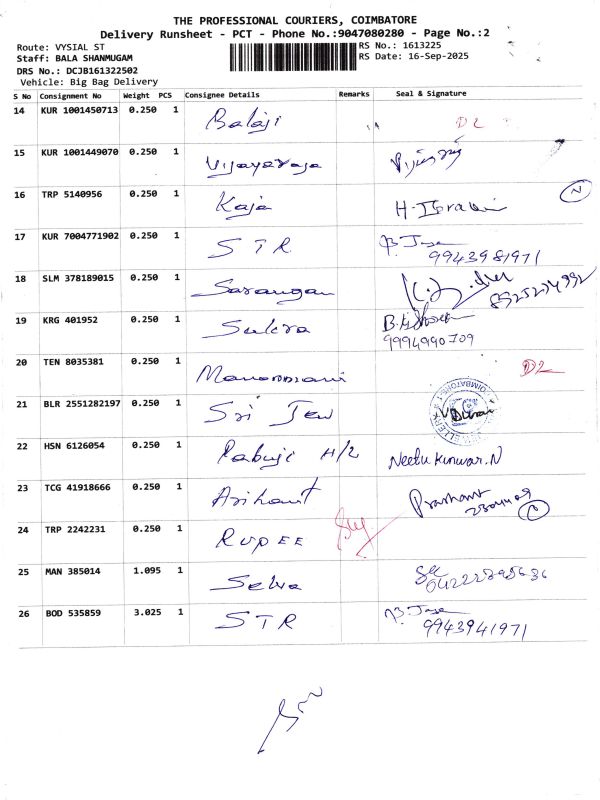 THE PROFESSIONAL COURIERS, COIMBATORE
Delivery Runsheet - PCT - Phone No.:9047080280 - Page No.:2
Route: VYSIAL ST
RS No.: 1613225
Staff: BALA SHANMUGAM
RS Date: 16-Sep-2025
DRS No.: DCJB161322502
Vehicle: Big Bag Delivery
S No Consignment No Weight PCS Consignee Details Remarks Seal & Signature
14 KUR 1001450713 0.250 1 Balaji D2
15 KUR 1001449070 0.250 1 Vijayaraja
16 TRP 5140956 0.250 1 Kaja H. Ibrahim N
17 KUR 7004771902 0.250 1 STR
9943981971
18 SLM 378189015 0.250 1 Sarangan
19 KRG 401952 0.250 1 Sukra
9994990709
20 TEN 8035381 0.250 1 Manonmani D2
21 BLR 2551282197 0.250 1 Sri Jew
22 HSN 6126054 0.250 1 Rabuji H/2 Neetu Kunwar.N
23 TCG 41918666 0.250 1 Arihant Prashant
24 TRP 2242231 0.250 1 RUPEE
25 MAN 385014 1.095 1 Selva
26 BOD 535859 3.025 1 STR
9943941971